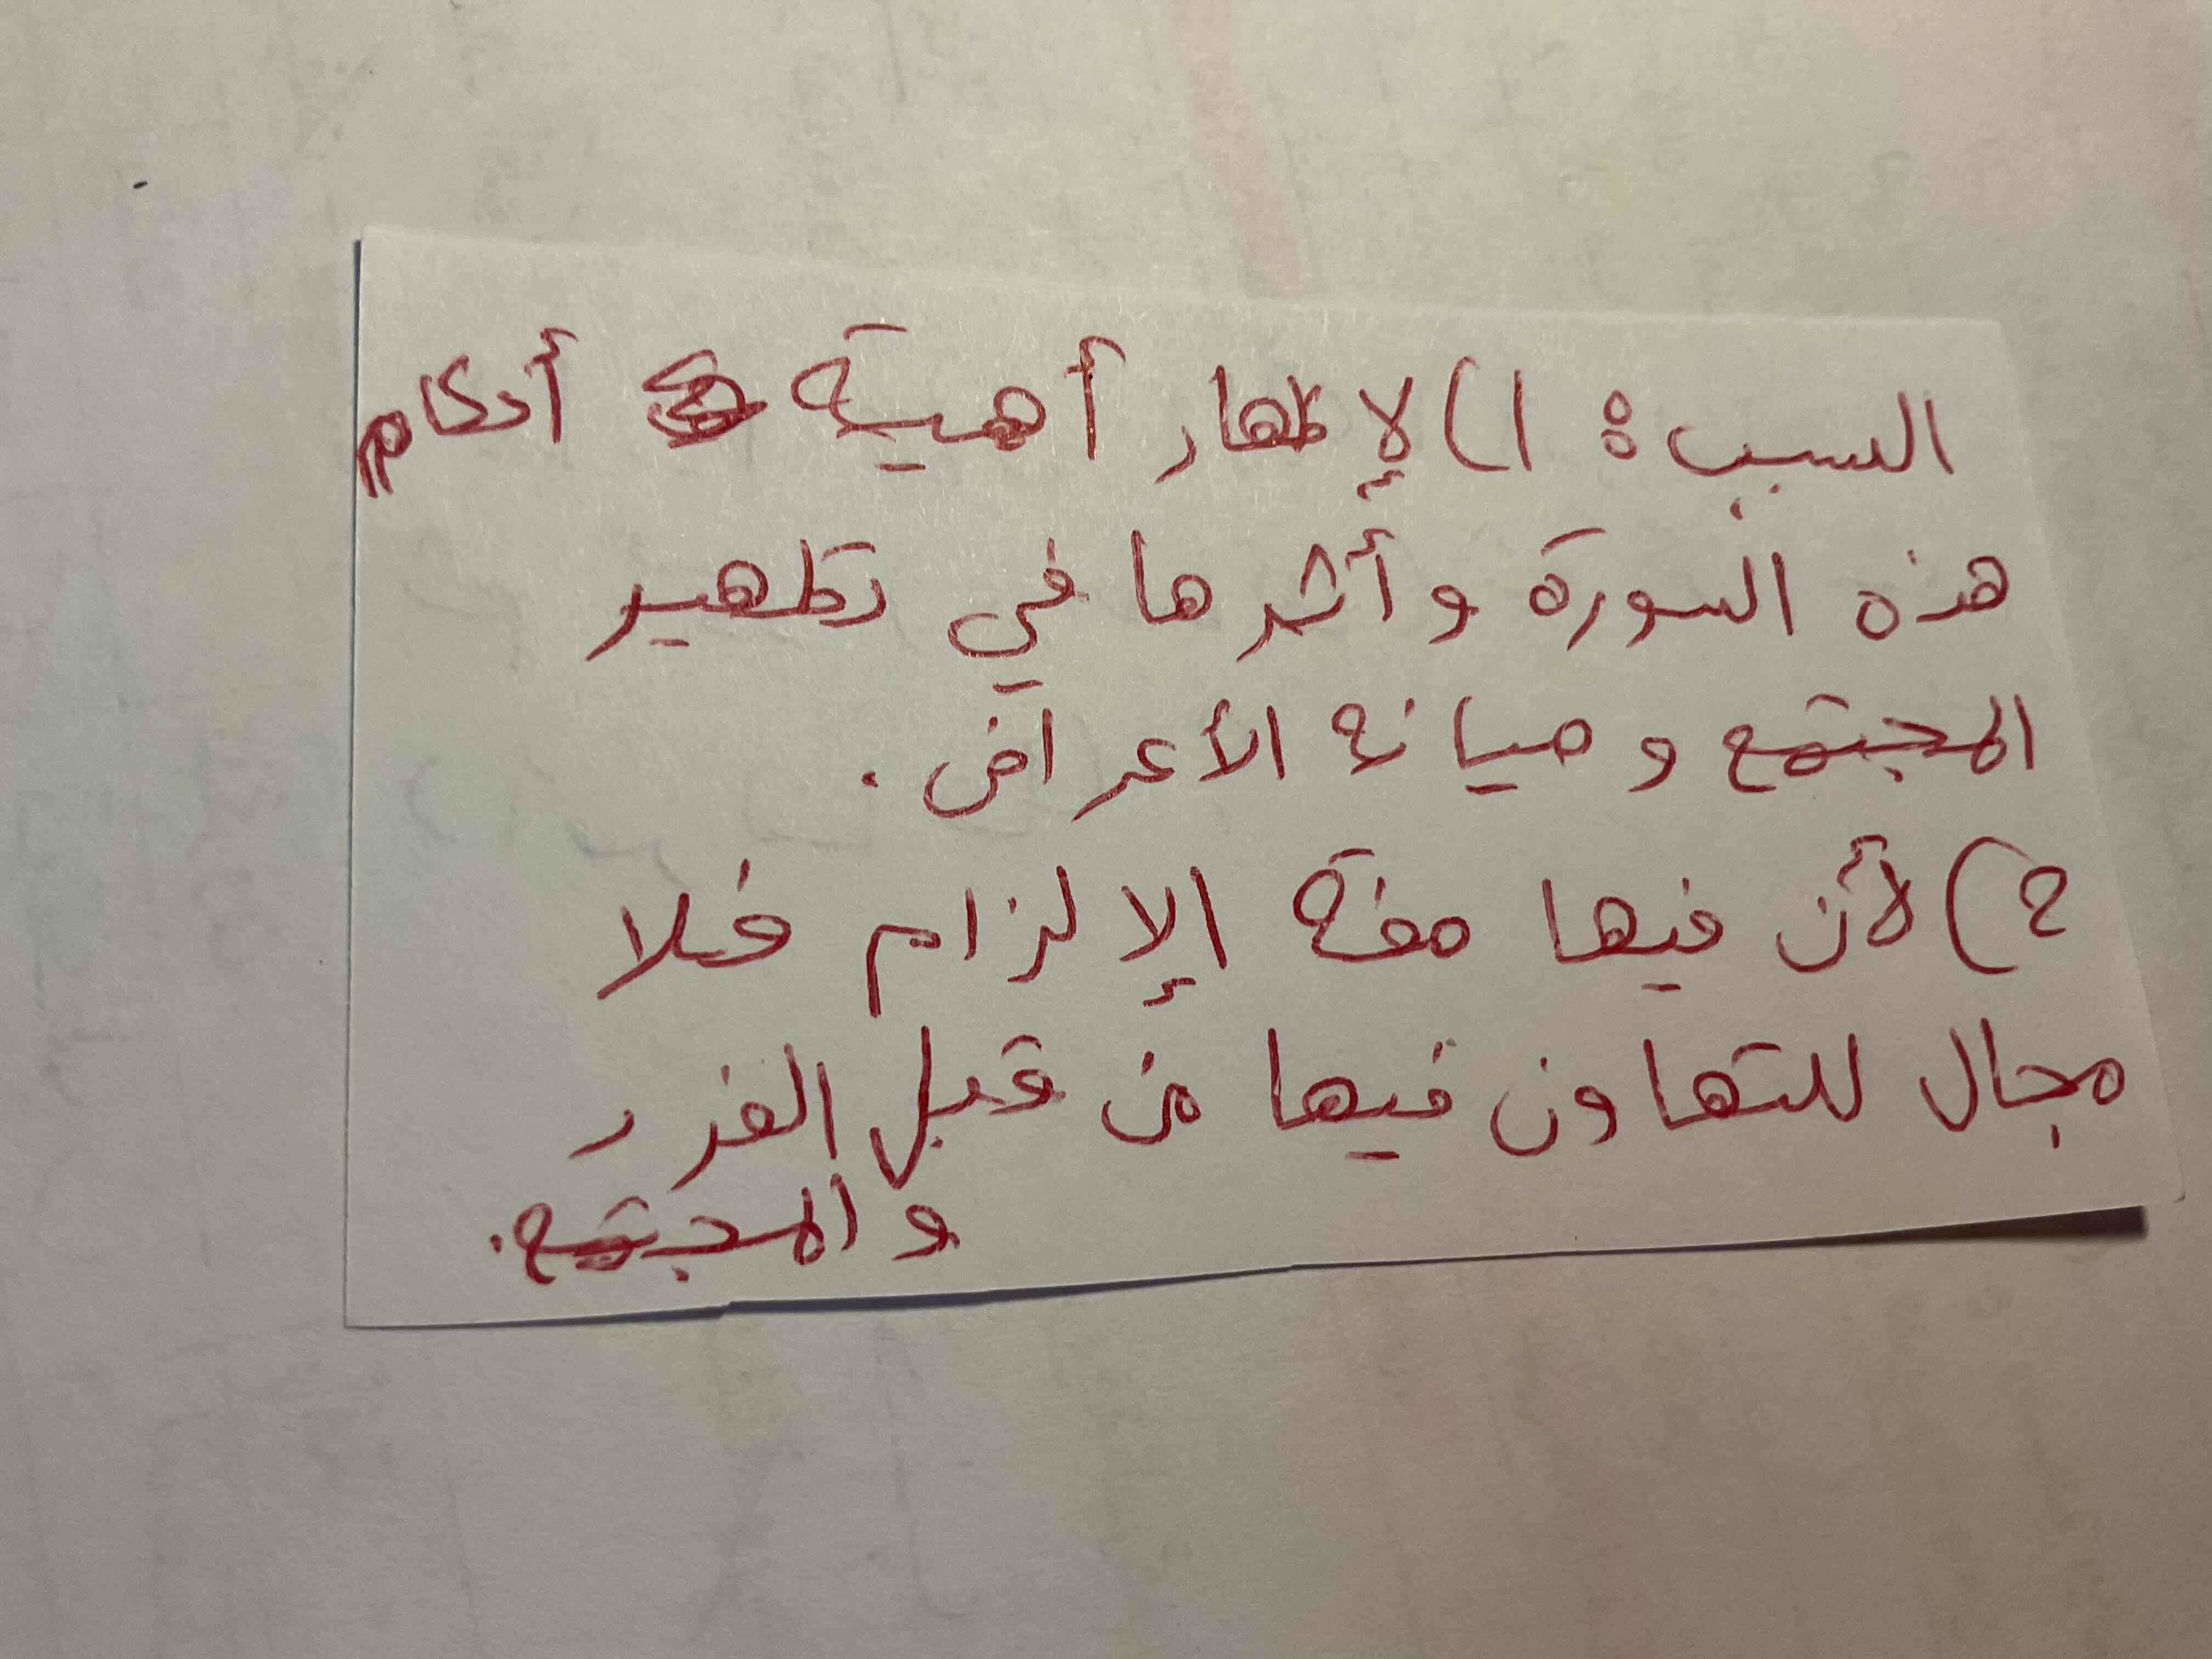 السبب: 1) لإظهار أهمية أحكام
هذه السورة وأثرها في تطهير
المجتمع وصيانة الأعراض.
2) لأن فيها صفة الإلزام فلا
مجال للتهاون فيها من قبل الفرد
والمجتمع.